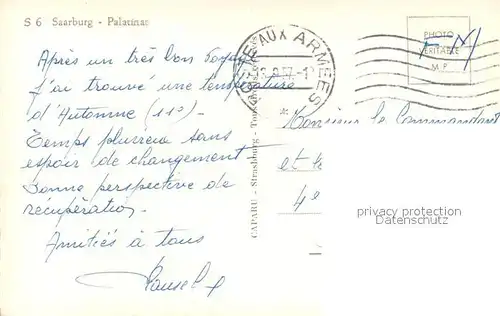 S 6 Saarburg - Palatinat
Après un très bon voyage
j'ai trouvé une température
d'Automne (11°).
Temps pluvieux sans
espoir de changement.
Bonne perspective de
récupération.
Amitiés à tous
CAPARU - Strasbourg -
POSTE AUX ARMEES
*
PHOTO
VERITABLE
M P
F M
Monsieur le Commandant
et
4e
privacy protection
Datenschutz